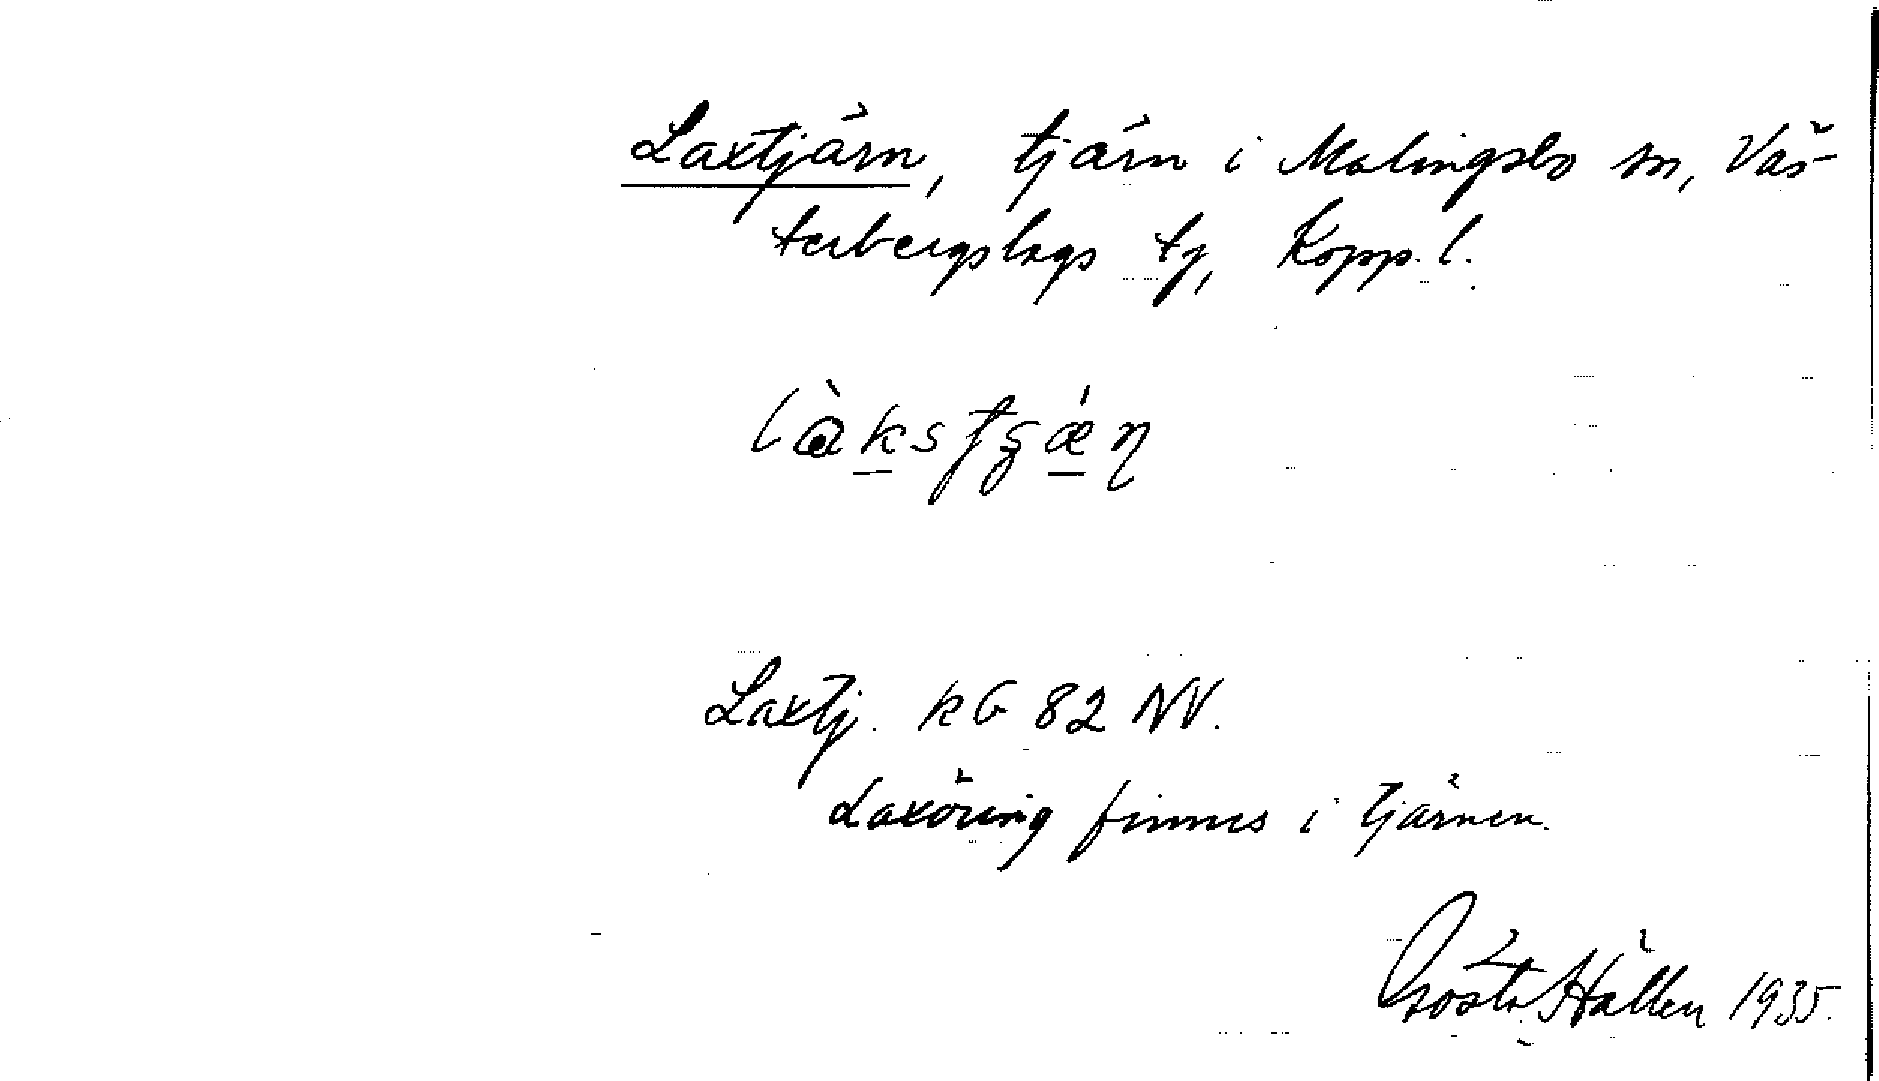 Laxtjärn, tjärn i Malingsbo sn, Väs-
terbergslags tg, Kopp. l.
Laxtj. KG 82 NV.
Laxöring finnes i tjärnen.
Gösta Hällen 1935.